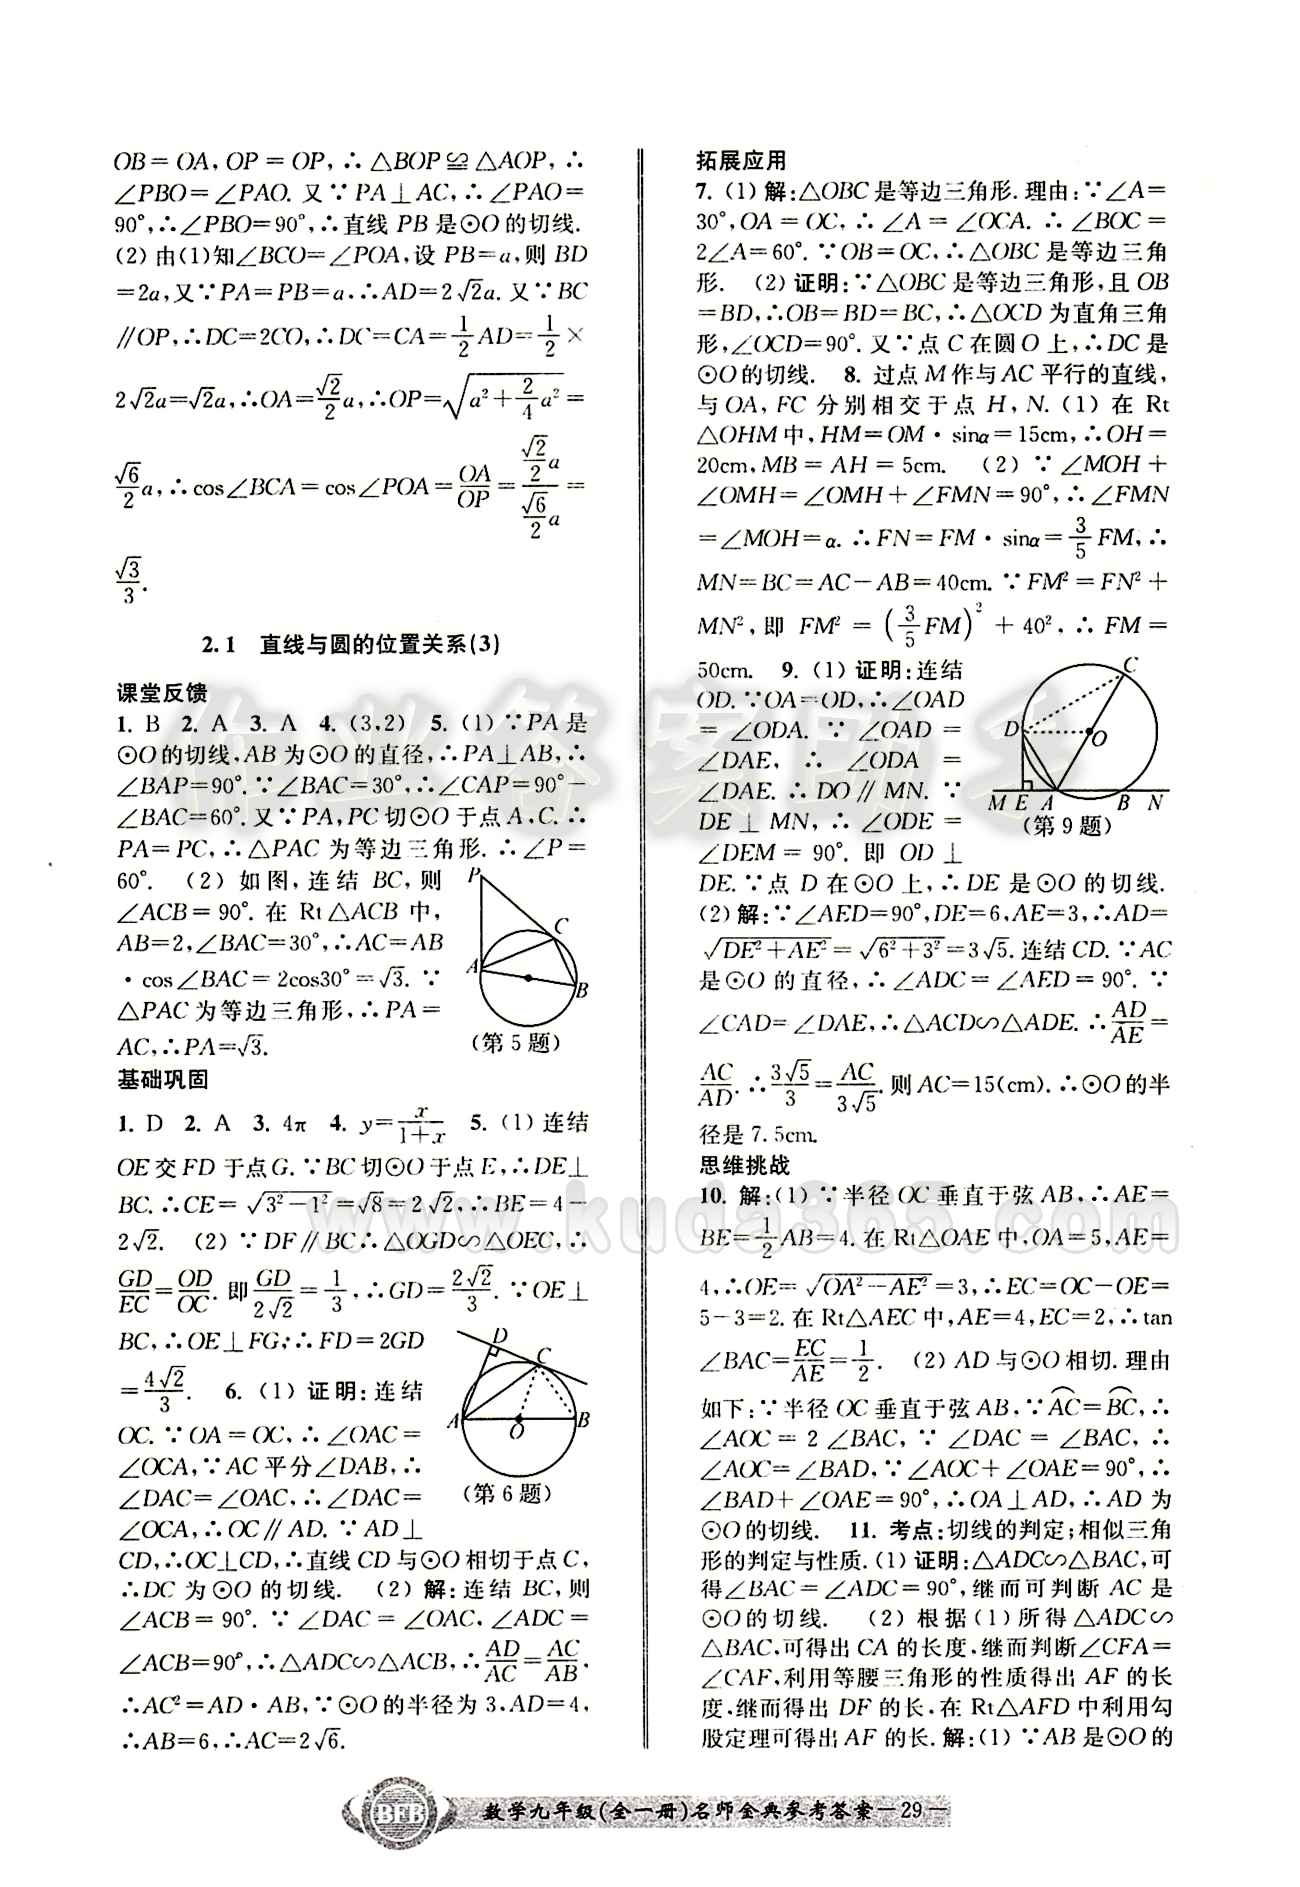 OB=OA,OP=OP,∴△BOP≌△AOP,∴
∠PBO=∠PAO.又∵PA⊥AC,∴∠PAO=
90°,∴∠PBO=90°,∴直线PB是⊙O的切线.
(2)由(1)知∠BCO=∠POA,设PB=a,则BD
=2a,又∵PA=PB=a.∴AD=2√2a.又∵BC
∥OP,∴DC=2CO,∴DC=CA=1/2AD=1/2×
2√2a=√2a,∴OA=√2/2a,∴OP=√(a²+2/4a²)=
√6/2a,∴cos∠BCA=cos∠POA=OA/OP=(√2/2a)/(√6/2a)=
√3/3.
2.1 直线与圆的位置关系(3)
课堂反馈
1. B 2. A 3. A 4. (3,2) 5. (1)∵PA是
⊙O的切线,AB为⊙O的直径,∴PA⊥AB,∴
∠BAP=90°.∵∠BAC=30°,∴∠CAP=90°-
∠BAC=60°.又∵PA,PC切⊙O于点A,C.∴
PA=PC,∴△PAC为等边三角形.∴∠P=
60°. (2)如图,连结BC,则
∠ACB=90°.在Rt△ACB中,
AB=2,∠BAC=30°,∴AC=AB
·cos∠BAC=2cos30°=√3.∵
△PAC为等边三角形,∴PA=
AC,∴PA=√3.
P
C
A
B
(第5题)
基础巩固
1. D 2. A 3. 4π 4. y=x/(1+x) 5. (1)连结
OE交FD于点G.∵BC切⊙O于点E,∴DE⊥
BC.∴CE=√(3²-1²)=√8=2√2,∴BE=4-
2√2. (2)∵DF∥BC∴△OGD∽△OEC,∴
GD/EC=OD/OC.即GD/2√2=1/3,∴GD=2√2/3.∵OE⊥
BC,∴OE⊥FG,∴FD=2GD
=4√2/3. 6. (1)证明:连结
OC.∵OA=OC,∴∠OAC=
∠OCA,∵AC平分∠DAB,∴
∠DAC=∠OAC,∴∠DAC=
∠OCA,∴OC∥AD.∵AD⊥
D
C
A
O
B
(第6题)
CD,∴OC⊥CD,∴直线CD与⊙O相切于点C,
∴DC为⊙O的切线. (2)解:连结BC,则
∠ACB=90°.∵∠DAC=∠OAC,∠ADC=
∠ACB=90°,∴△ADC∽△ACB,∴AD/AC=AC/AB.
∴AC²=AD·AB,∵⊙O的半径为3,AD=4,
∴AB=6,∴AC=2√6.
拓展应用
7. (1)解:△OBC是等边三角形.理由:∵∠A=
30°,OA=OC,∴∠A=∠OCA.∴∠BOC=
2∠A=60°.∵OB=OC,∴△OBC是等边三角
形. (2)证明:∵△OBC是等边三角形,且OB
=BD,∴OB=BD=BC,∴△OCD为直角三角
形,∠OCD=90°.又∵点C在圆O上,∴DC是
⊙O的切线. 8. 过点M作与AC平行的直线,
与OA,FC分别相交于点H,N.(1)在Rt
△OHM中,HM=OM·sinα=15cm,∴OH=
20cm,MB=AH=5cm. (2)∵∠MOH+
∠OMH=∠OMH+∠FMN=90°,∴∠FMN
=∠MOH=α.∴FN=FM·sinα=3/5FM,∴
MN=BC=AC-AB=40cm.∵FM²=FN²+
MN²,即FM²=(3/5FM)²+40²,∴FM=
50cm. 9. (1)证明:连结
OD.∵OA=OD,∴∠OAD
=∠ODA.∵∠OAD=
∠DAE,∴∠ODA=
∠DAE.∴DO∥MN.∵
DE⊥MN,∴∠ODE=
∠DEM=90°.即OD⊥
C
D
O
M E A B N
(第9题)
DE.∵点D在⊙O上,∴DE是⊙O的切线.
(2)解:∵∠AED=90°,DE=6,AE=3,∴AD=
√(DE²+AE²)=√(6²+3²)=3√5.连结CD.∵AC
是⊙O的直径,∴∠ADC=∠AED=90°.∵
∠CAD=∠DAE,∴△ACD∽△ADE.∴AD/AE=
AC/AD.∴3√5/3=AC/3√5.则AC=15(cm).∴⊙O的半
径是7.5cm.
思维挑战
10. 解:(1)∵半径OC垂直于弦AB,∴AE=
BE=1/2AB=4.在Rt△OAE中,OA=5,AE=
4,∴OE=√(OA²-AE²)=3,∴EC=OC-OE=
5-3=2.在Rt△AEC中,AE=4,EC=2,∴tan
∠BAC=EC/AE=1/2. (2)AD与⊙O相切.理由
如下:∵半径OC垂直于弦AB,∵AC⌒=BC⌒,∴
∠AOC=2∠BAC,∵∠DAC=∠BAC,∴
∠AOC=∠BAD,∵∠AOC+∠OAE=90°,∴
∠BAD+∠OAE=90°,∴OA⊥AD,∴AD为
⊙O的切线. 11. 考点:切线的判定;相似三角
形的判定与性质.(1)证明:△ADC∽△BAC,可
得∠BAC=∠ADC=90°,继而可判断AC是
⊙O的切线. (2)根据(1)所得△ADC∽
△BAC,可得出CA的长度,继而判断∠CFA=
∠CAF,利用等腰三角形的性质得出AF的长
度,继而得出DF的长,在Rt△AFD中利用勾
股定理可得出AF的长.解:(1)∵AB是⊙O的
作业答案助手
www.kuda365.com
BFB
数学九年级(全一册)名师金典参考答案—29—